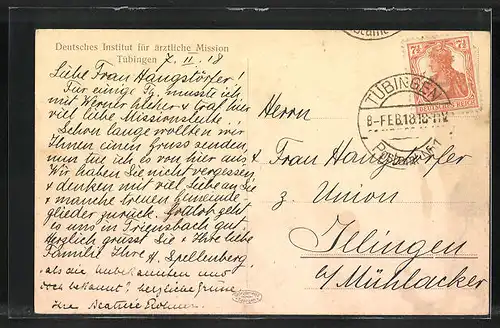 Deutsches Institut für ärztliche Mission
Tübingen 7. II. 18
Liebe Frau Hangstörfer!
Für einige Tg. musste ich
mit Werner hieher & traf hier
viel liebe Missionsleute!
Schon lange wollten wir
Ihnen einen Gruss senden,
nun tue ich es von hier aus &
Wir haben Sie nicht vergessen
& denken mit viel Liebe an Sie
& manche treuen Gemeinde-
glieder zurück. Gottlob geht
es uns in Triensbach gut.
Herzlich grüsst Sie & Ihre liebe
Familie Ihre A. Spellenberg.
als die unbekannten und
doch bekannt! herzliche Grüsse,
Ihre Beatrie
TÜBINGEN
8-FEB.18.10-11V.
7½ 7½
DEUTSCHES REICH
Herrn
Frau Hangstörfer
z. Union
Illingen
o/ Mühlacker